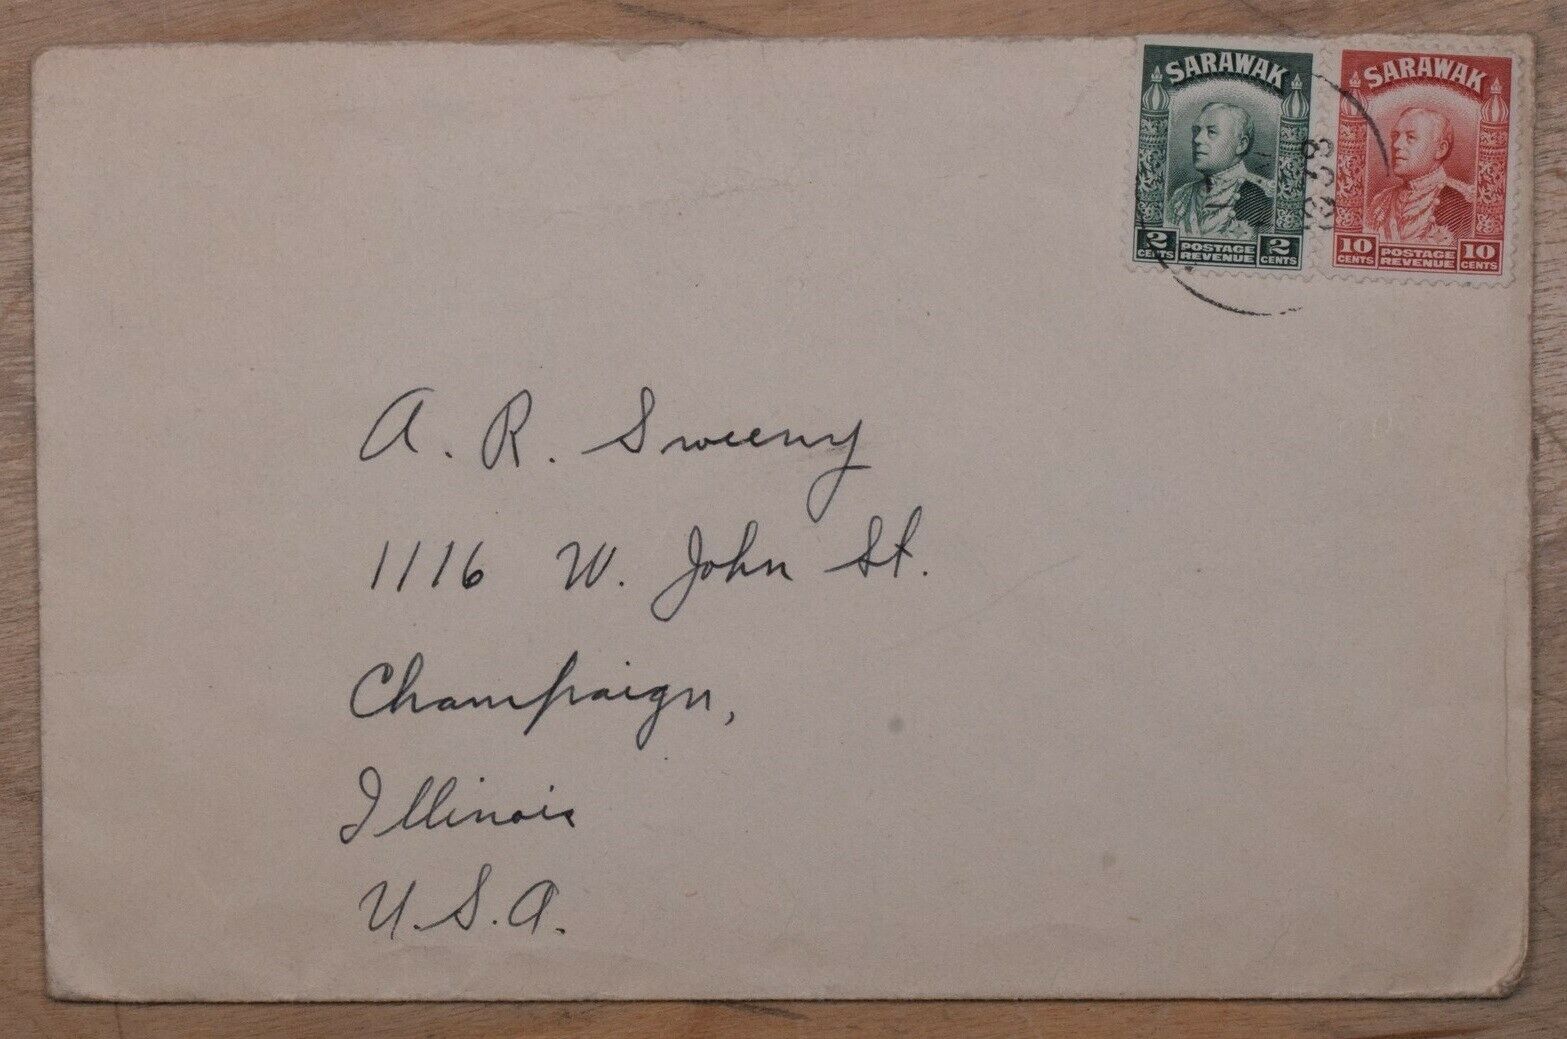 SARAWAK
2 CENTS POSTAGE REVENUE 2 CENTS
SARAWAK
10 CENTS POSTAGE REVENUE 10 CENTS
A. R. Sweeny
1116 W. John St.
Champaign,
Illinois
U.S.A.